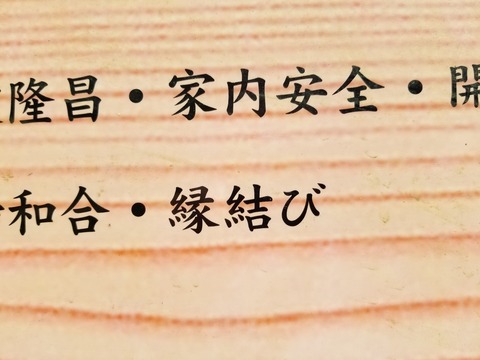 隆昌・家内安全・開
和合・縁結び